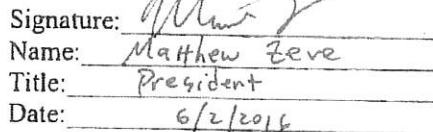 Signature:
Name: Matthew Zeve
Title: President
Date: 6/2/2016